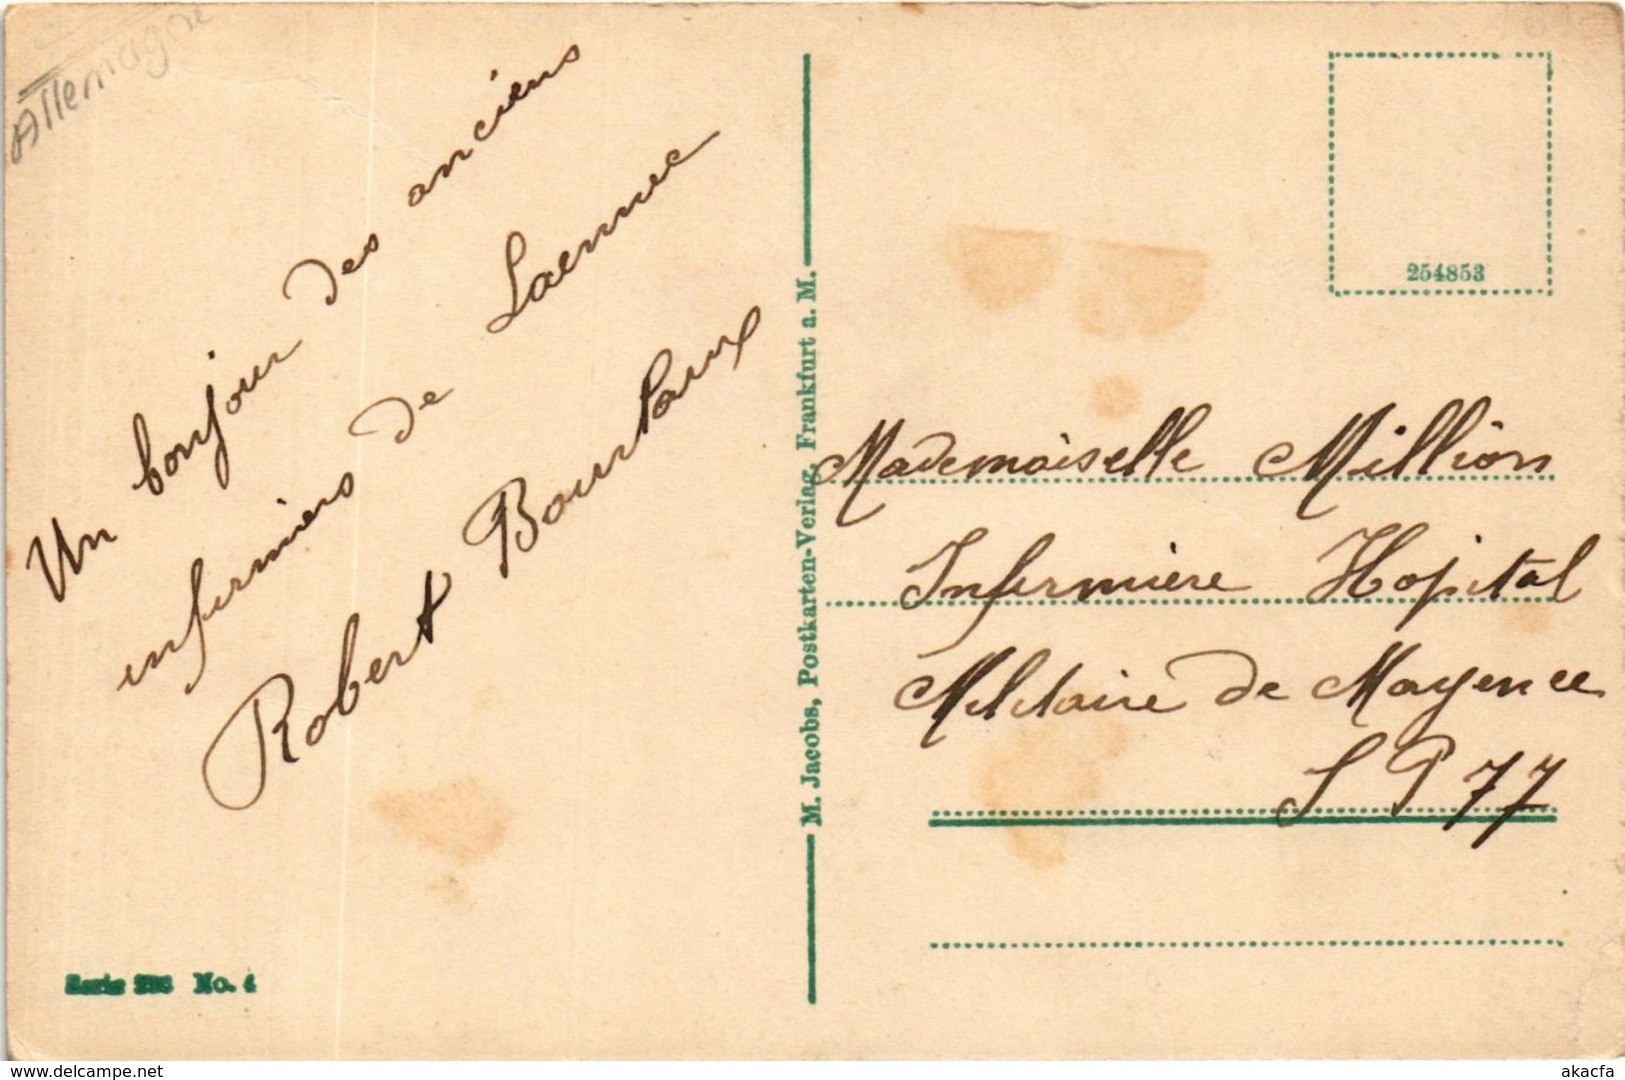 Allemagne
Un bonjour des anciens
infirmiers de Laennec
Robert
M. Jacobs, Postkarten-Verlag, Frankfurt a. M.
254853
Mademoiselle Million
Infirmière Hopital
Militaire de Mayence
S P 77
No. 4
delcampe.net
akacfa